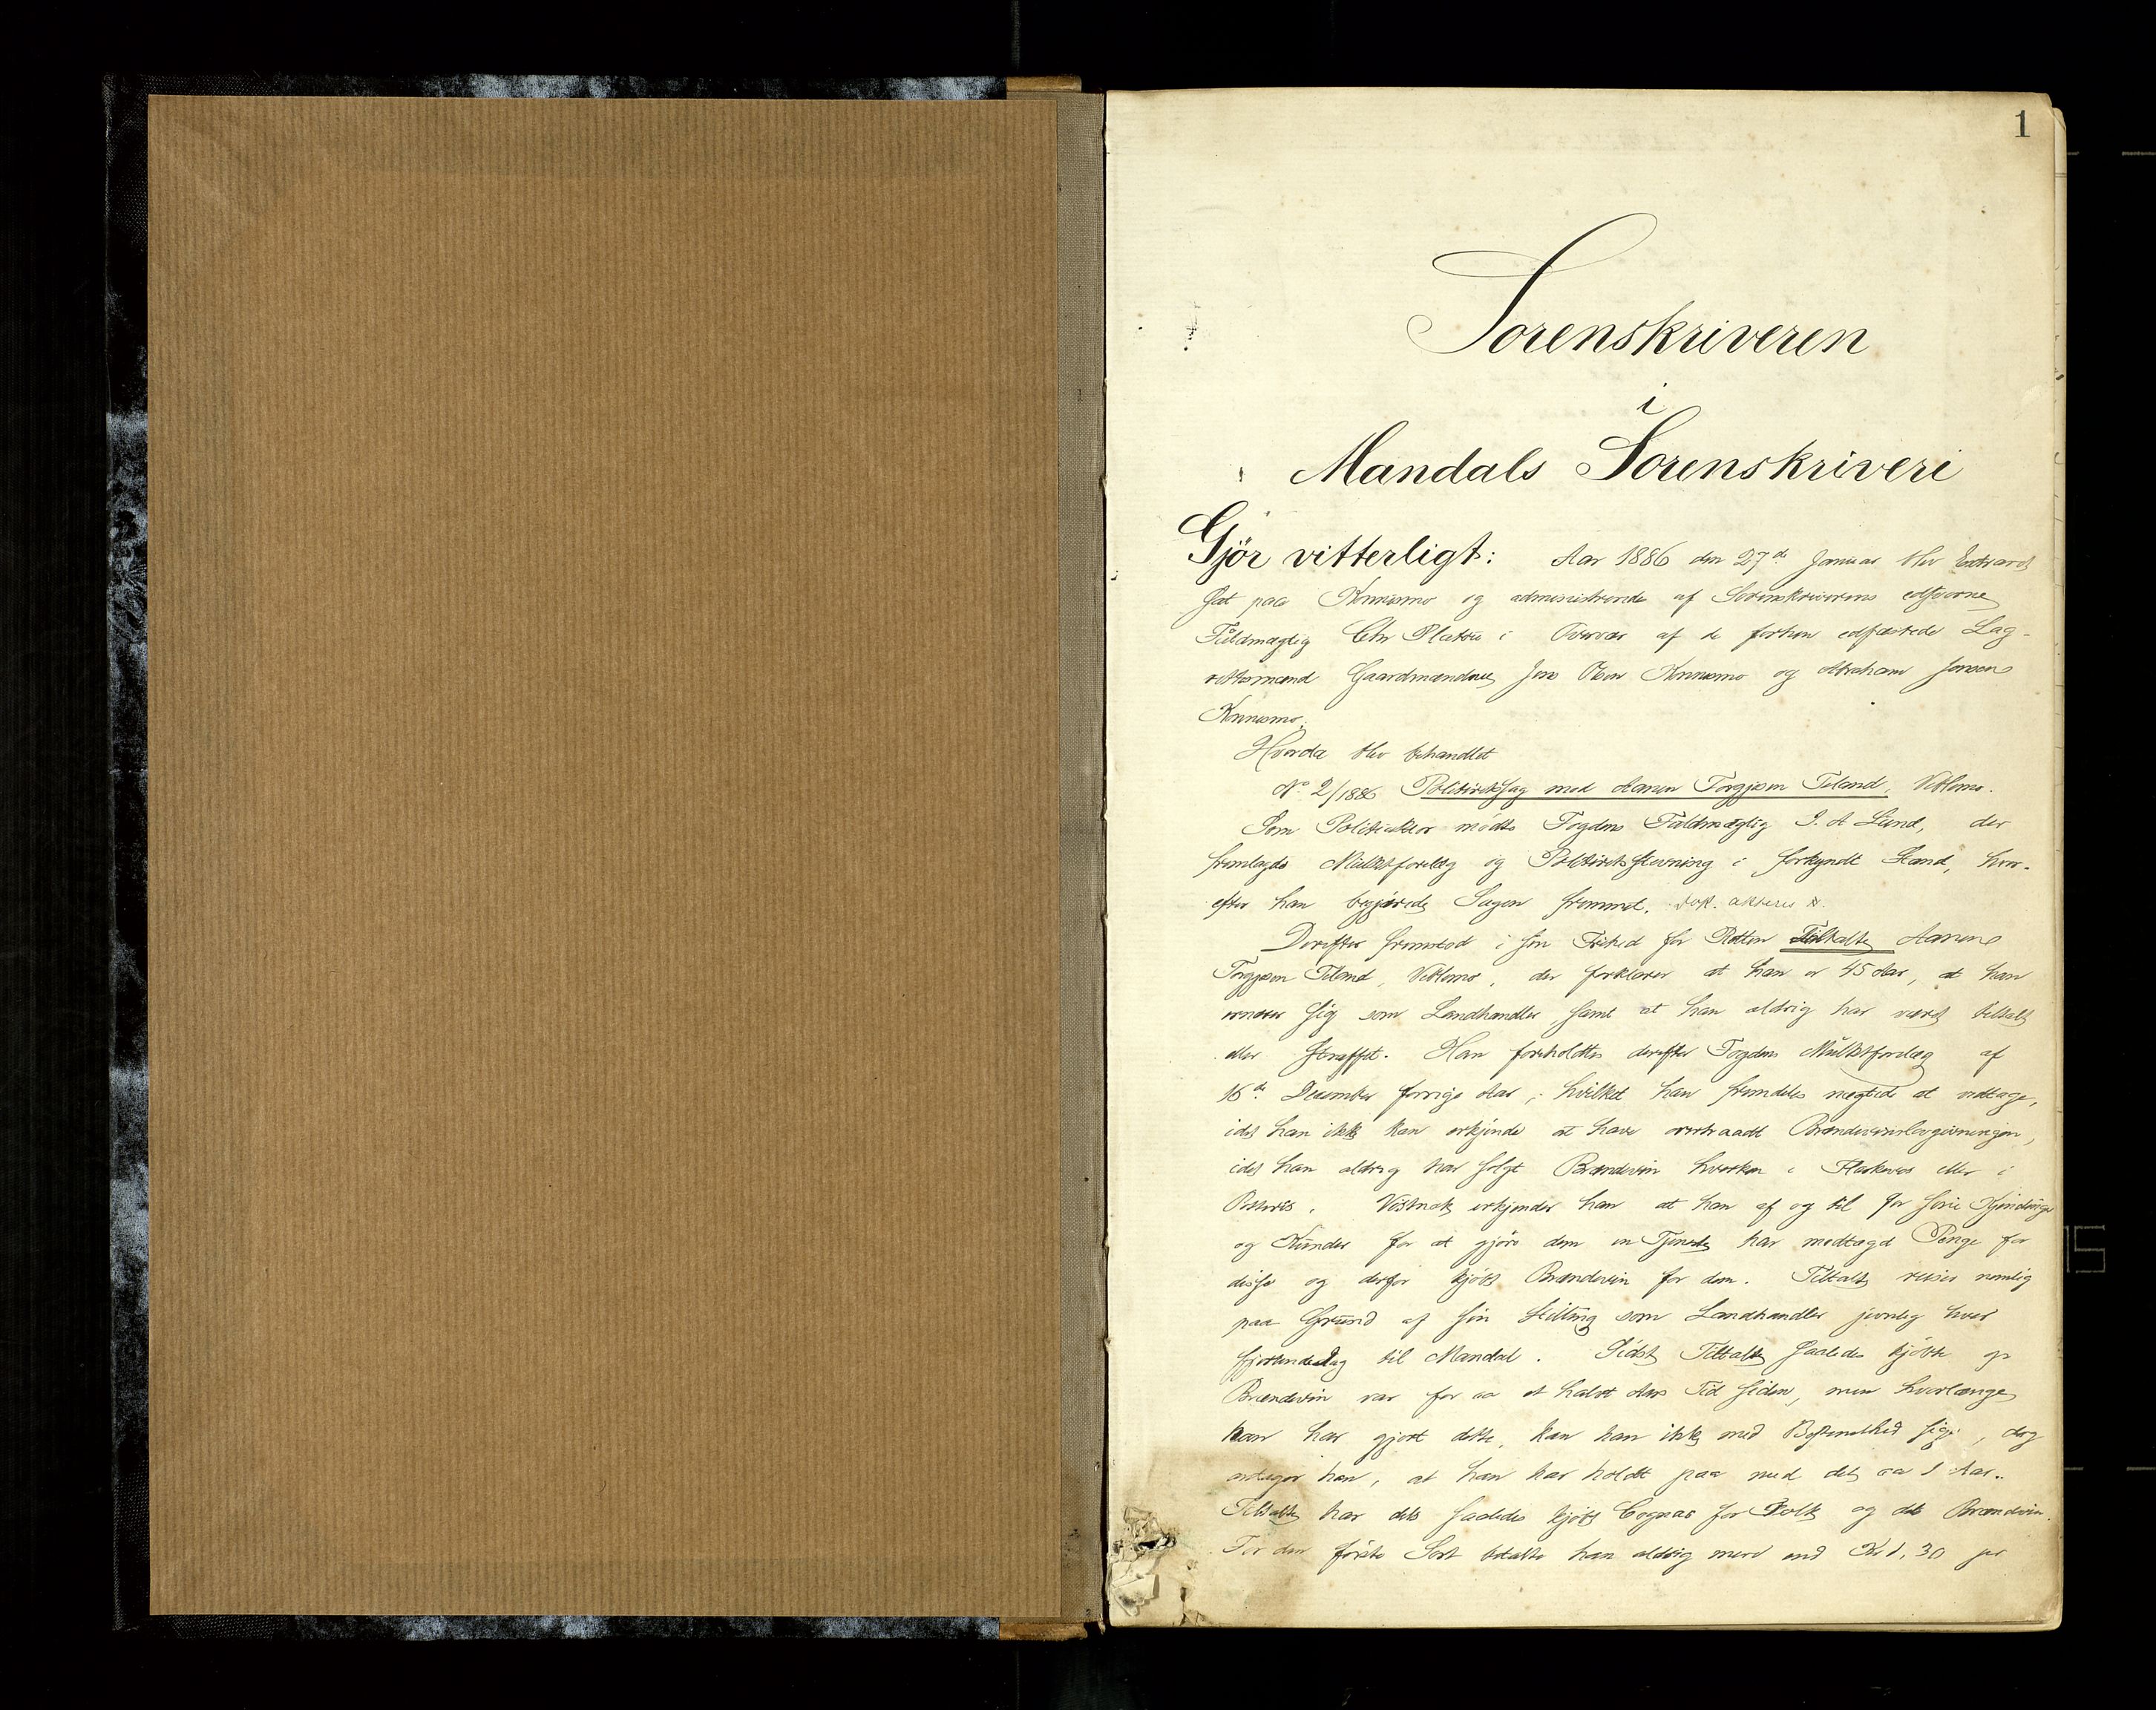 1
Sorenskriveren
i
Mandals Sorenskriveri
Gjör vitterligt: Aar 1886 den 27de Januar blev Extraret
sat paa Konnesmo og administrerede af Sorenskriverens edsvorne
Fuldmægtig Chr Platou i Overvær af de forhen edfæstede Lag-
rettesmænd Gaardmændene Jens Olsen Konnesmo og Abraham Jensen
Konnesmo.
Hvorda blev behandlet
No 2/1886 Politiretssag mod Aanen Torgjesen Tiland, Vetlomo.
Som Politiaktor mødte Fogdens Fuldmægtig S. A Lund, der
fremlagde Mulktforelæg og Politiretsstevning i forkyndt Stand, hvor-
efter han begjærede Sagen fremmet. Dok. akteres
Derefter fremstod i sin Frihed for Retten Tiltalte Aanen
Torgjesen Tiland, Vetlomo, der forklarer at han er 45 Aar, at han
ernærer sig som Landhandler, samt at han aldrig har været tiltalt
eller straffet. Han foreholdtes derefter Fogdens Mulktforelæg af
16de December forrige Aar, hvilket han fremdeles nægtede at vedtage,
idet han ikke kan erkjende at have overtraadt Brændevinslovgivningen,
idet han aldrig har solgt Brændevin hverken i Flaskevis eller i
Vistnok erkjender han at han af og til for sine Kjendinge
og Kunder for at gjøre dem en Tjeneste har modtaget Penge for
disse og derfor kjøbt Brændevin for dem. Tiltalte reiser nemlig
paa Grund af sin Stilling som Landhandler jevnlig hver
fjortende Dag til Mandal. Sidst Tiltalte saaledes kjøbte op
Brændevin var for ca et halvt Aars Tid siden, men hvorlænge
han har gjort dette, kan han ikke med Bestemthed sige, dog
antager han, at han har holdt paa med det ca 1 Aar.
Tiltalte har dels saaledes kjøbt Cognac for Folk og dels Brændevin.
For den første Sort betalte han aldrig mere end Kr 1,30 pr